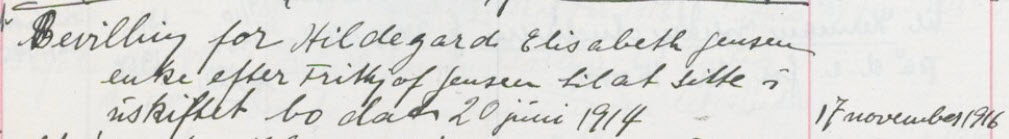 Bevilling for Hildegard Elisabeth Jensen
enke efter Frithjof Jensen til at sitte i
uskiftet bo dat 20 juni 1914 17 november 1916